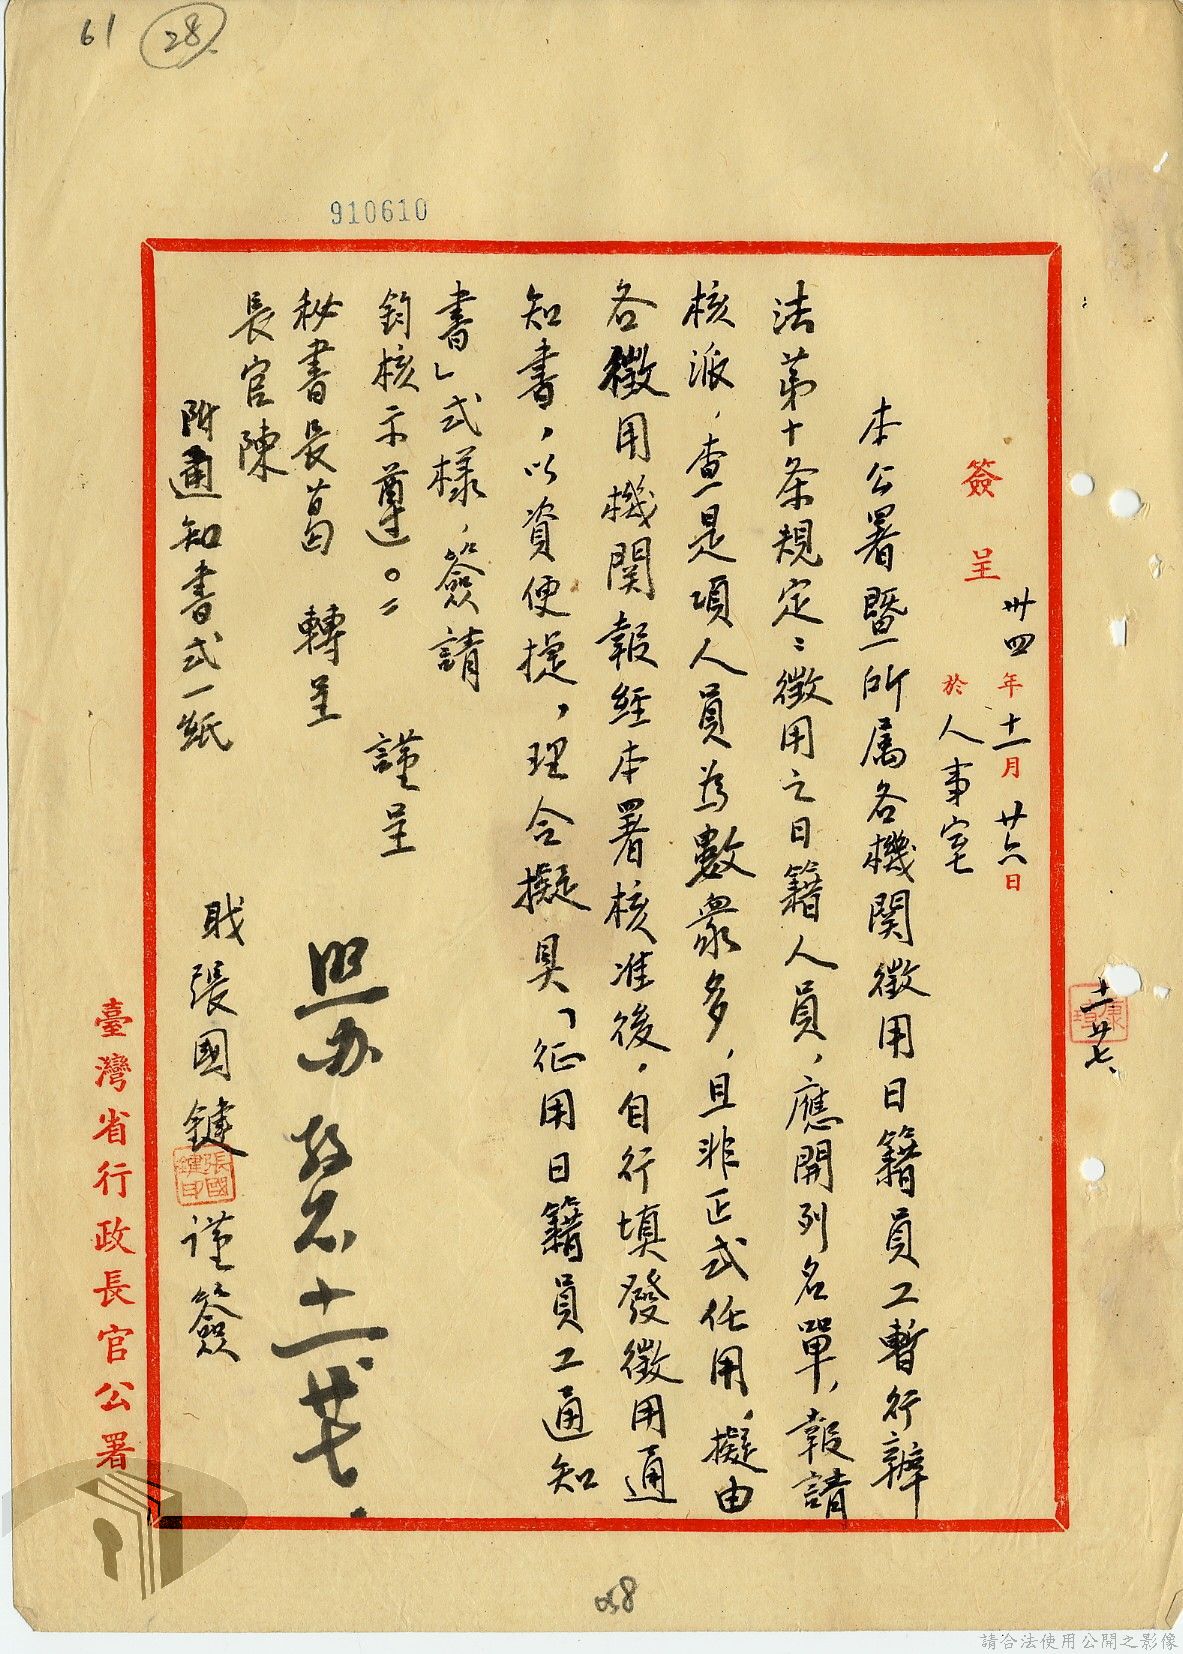 61
28
910610
簽呈
卅四年十一月廿六日
於人事室
本公署暨所属各機関徵用日籍員工暫行辦
法苐十条規定：徵用之日籍人員，應開列名單，報請
核派，查是項人員為數衆多，且非正式任用，擬由
各徵用機関報經本署核准後，自行填發徵用通
知書，以資便捷，理合擬具「征用日籍員工通知
書」式樣，簽請
鈞核示遵。謹呈
秘書長葛 轉呈
長官陳
附通知書式一紙
職張國鍵謹簽
張國鍵印
照办
十一廿七
十一廿七
臺灣省行政長官公署
058
請合法使用公開之影像